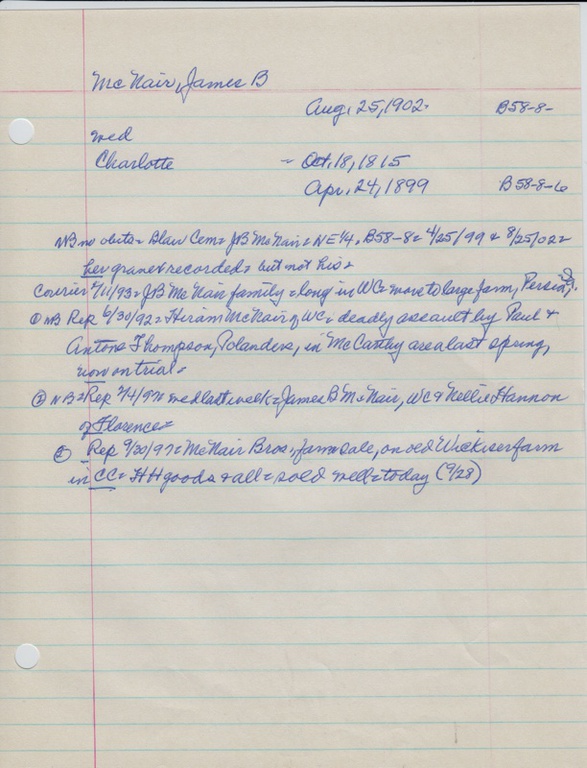 McNair, James B
Aug. 25, 1902. B58-8-
med
Charlotte = Oct. 18, 1815
Apr. 24, 1899 B58-8-6
NB no obits = Blair Cem = JB McNair = NE 1/4, B58-8 = 4/25/99 & 8/25/02 =
her grave recorded = but not his =
Courier 4/11/93 = JB McNair family = long in WC = move to large farm, Persia,
① NB Rep 6/30/92 = Hiram McNair of WC = deadly assault by Paul &
Antone Thompson, Polanders, in McCartey area last spring,
now on trial =
② NB = Rep 7/4/97 = med last week = James B McNair, WC & Nellie Hannon
of Florence =
Rep 9/30/97 = McNair Bros, farm sale, on old farm
in CC = HH goods & all = sold well = today (9/28)